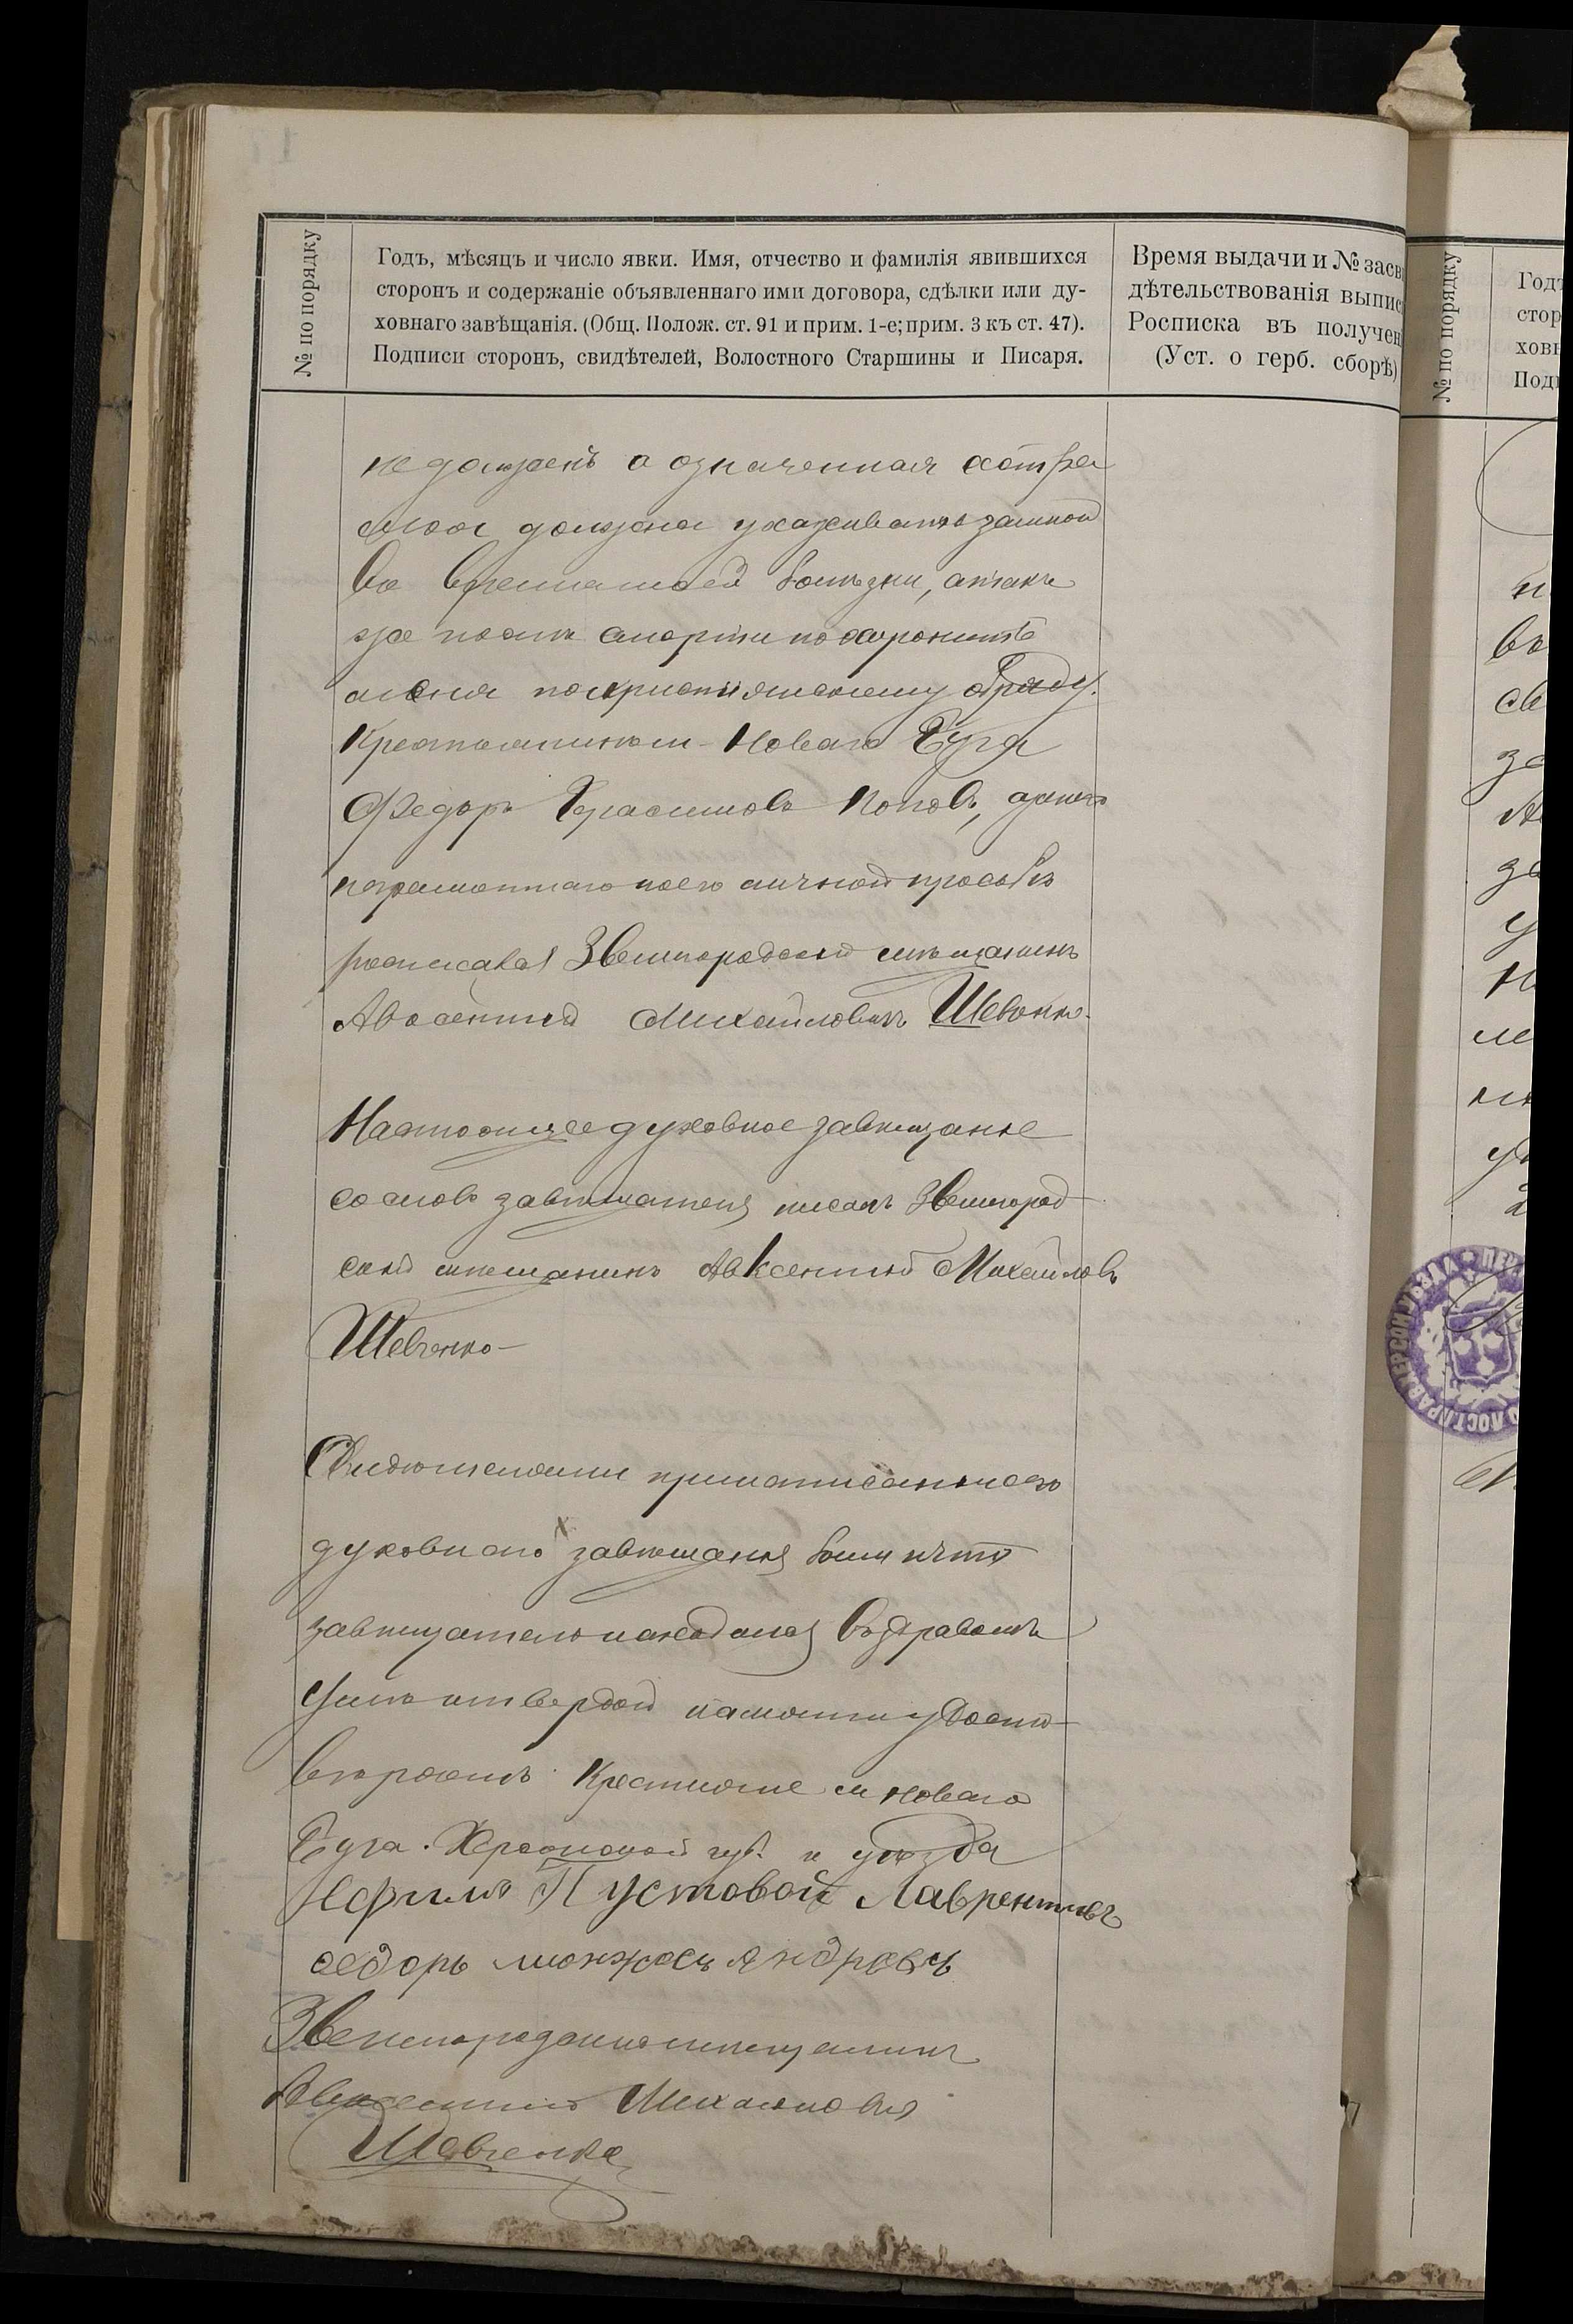 № по порядку
Годъ, мѣсяцъ и число явки. Имя, отчество и фамилія явившихся
сторонъ и содержаніе объявленнаго ими договора, сдѣлки или ду-
ховнаго завѣщанія. (Общ. Полож. ст. 91 и прим. 1-е; прим. 3 къ ст. 47).
Подписи сторонъ, свидѣтелей, Волостного Старшины и Писаря.
Время выдачи и № засви
дѣтельствованія выпис
Росписка въ получен
(Уст. о герб. сборѣ)
не долженъ а означенная сестра
моя должна ухаживать за мной
во время моей болѣзни, а так
же послѣ смерти похоронить
меня по христіянскому обряду.
Крестьянинъ Новаго Буга
Федоръ Герасимовъ Поповъ, а за него
неграмотнаго по его личной просьбѣ
росписався Звенигородскій мѣщанинъ
Авксентій Михайловъ Шевченко.
Настоящее духовное завѣщаніе
со словъ завѣщателя писалъ Звенигород
скій мѣщанинъ Авксентій Михайловъ
Шевченко
Свидѣтелями при написаніи сего
духовнаго завѣщанія были и что
завѣщатель находился въ здравомъ
умѣ и твердой памяти удосто
вѣряемъ Крестьяне м Новаго
Буга. Херсонской губ. и уѣзда
Пустовой Лаврентіевъ
Андреевъ
Звенигородскій мѣщанинъ
Авксентій Михайловъ
Шевченко
№ по порядку
Годъ
стор
ховн
Подп